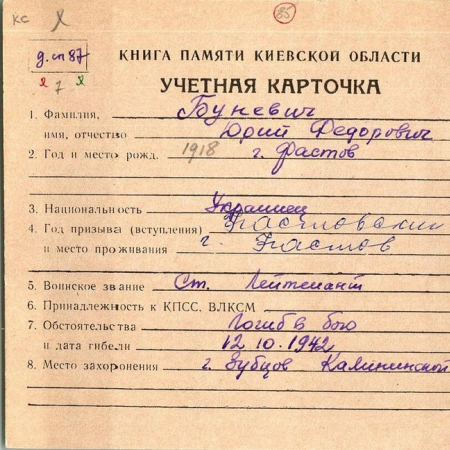 КС
85
д. сп 87
7
КНИГА ПАМЯТИ КИЕВСКОЙ ОБЛАСТИ
УЧЕТНАЯ КАРТОЧКА
1. Фамилия, Буневич
имя, отчество Юрий Федорович
2. Год и место рожд. 1918 г. Фастов
3. Национальность Украинец
4. Год призыва (вступления) Фастовский
и место проживания г. Фастов
5. Воинское звание Ст. Лейтенант
6. Принадлежность к КПСС, ВЛКСМ
7. Обстоятельства Погиб в бою
и дата гибели 12.10.1942
8. Место захоронения г. Зубцов Калининской